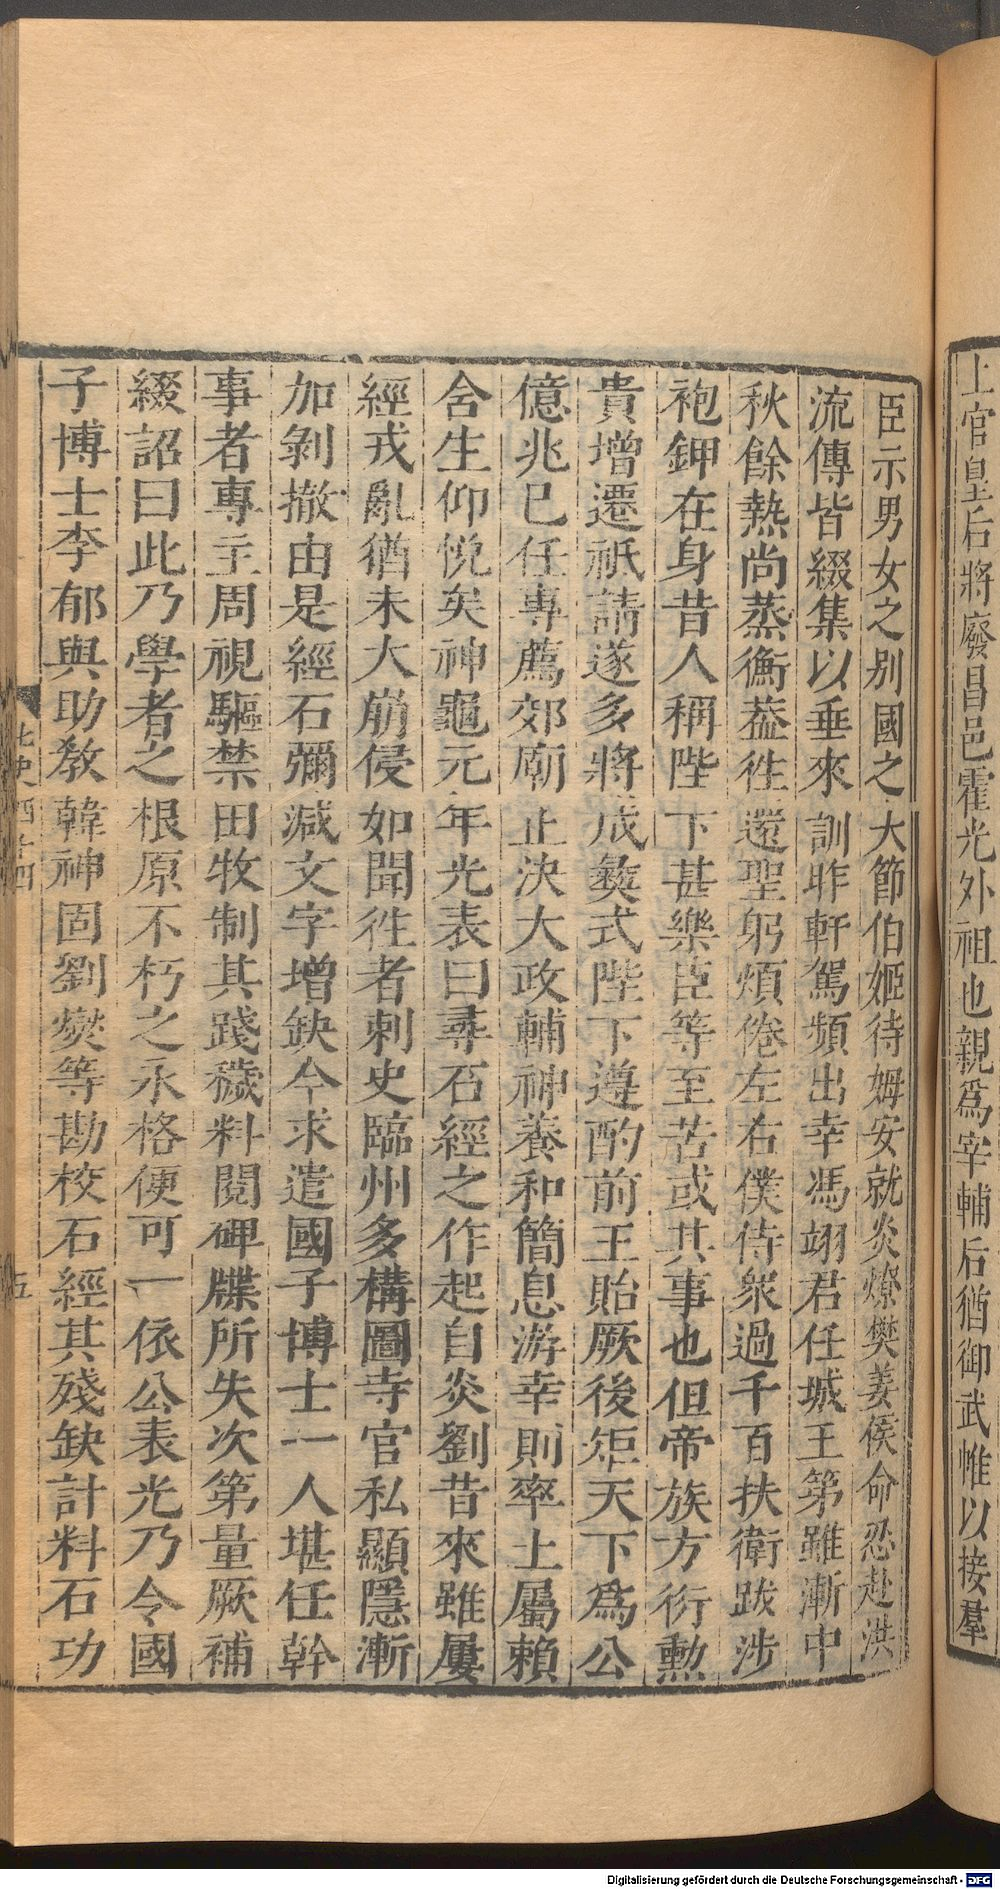 上官皇后將廢昌邑霍光外祖也親爲宰輔后猶御武帷以接羣
臣示男女之別國之大節伯姬待姆安就炎燎樊姜俟命忍赴洪
流傳皆綴集以垂來訓昨軒駕頻出幸馮翊君任城王第雖漸中
秋餘熱尚蒸衡葢徃還聖躬煩倦左右僕侍衆過千百扶衛跋涉
袍鉀在身昔人稱陛下甚樂臣等至苦或其事也但帝族方衍勳
貴增遷祇請遂多將成彝式陛下遵酌前王貽厥後矩天下爲公
億兆已任專薦郊廟止決大政輔神養和簡息游幸則率土屬賴
含生仰悅矣神龜元年光表曰尋石經之作起自炎劉昔來雖屢
經戎亂猶未大崩侵如聞徃者刺史臨州多構圖寺官私顯隱漸
加剝撤由是經石彌減文字增缺今求遣國子博士一人堪任幹
事者專主周視驅禁田牧制其踐穢料閱碑牒所失次第量厥補
綴詔曰此乃學者之根原不朽之永格便可一依公表光乃令國
子博士李郁與助教韓神固劉燮等勘校石經其殘缺計料石功
北史四十四
五
Digitalisierung gefördert durch die Deutsche Forschungsgemeinschaft - DFG